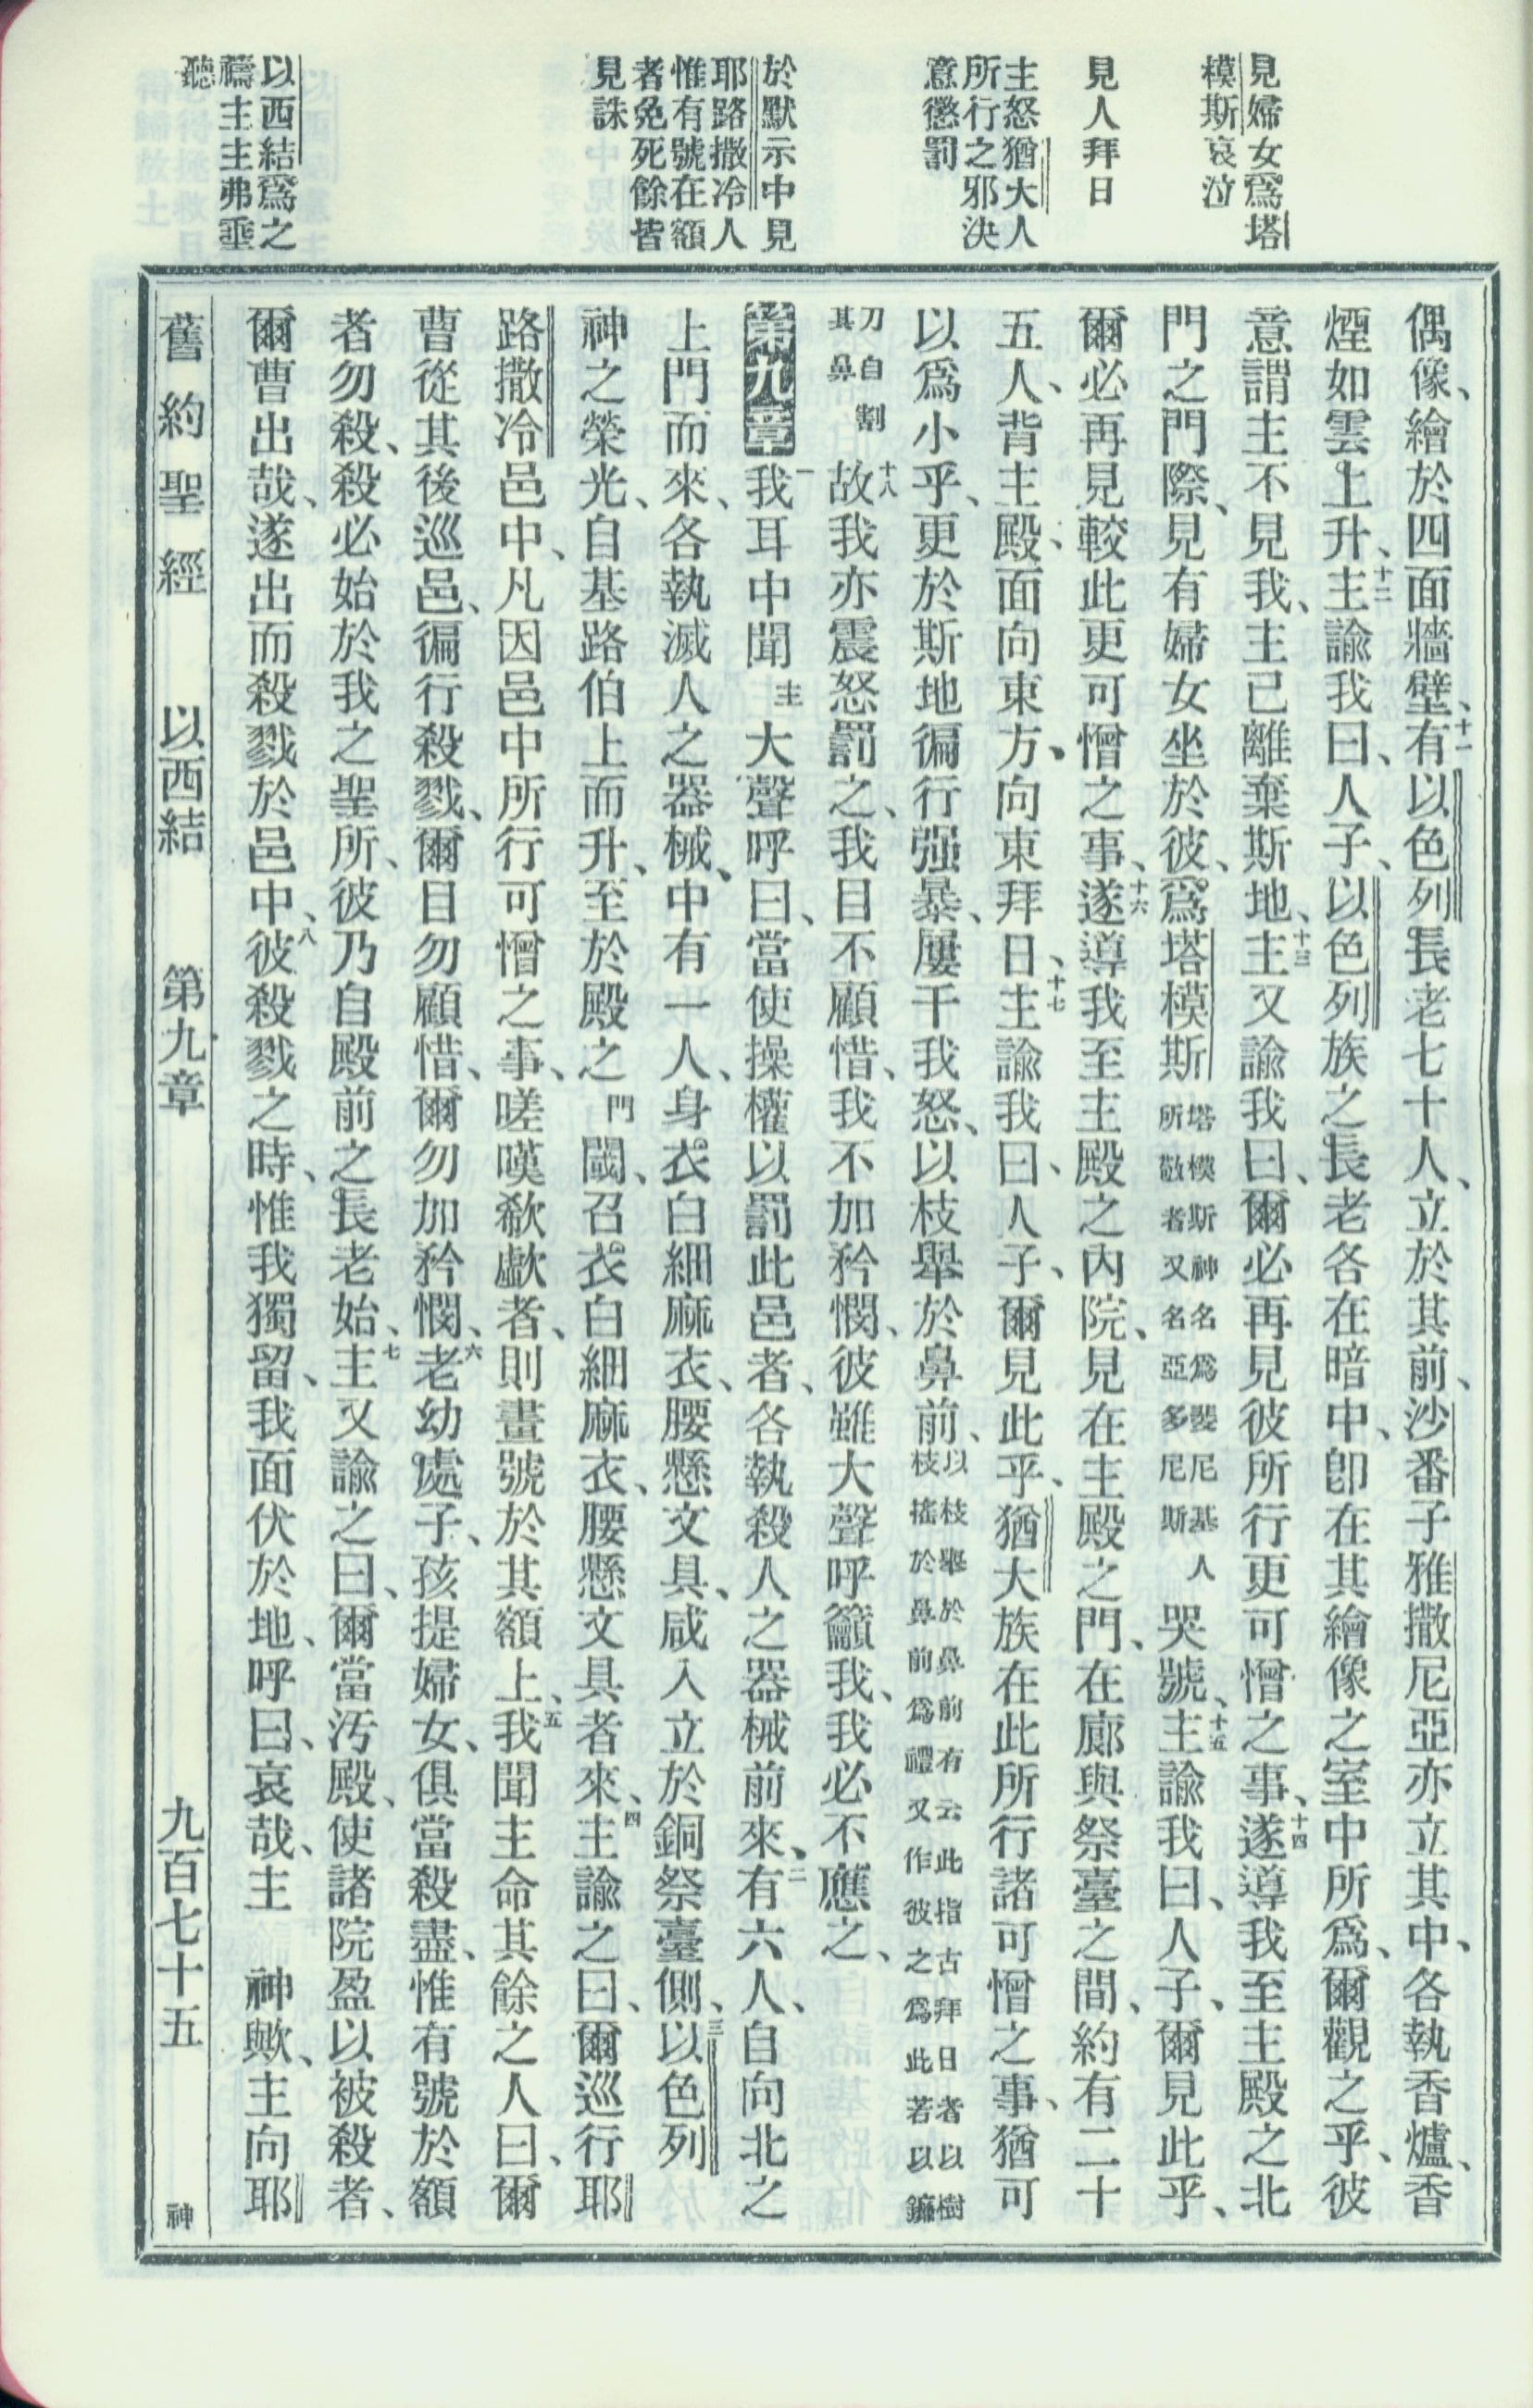 見婦女爲塔
模斯哀泣
見人拜日
主怒猶大人
所行之邪決
意懲罰
於默示中見
耶路撒冷人
惟有號在額
者免死餘皆
見誅
以西結爲之
禱主主弗垂
聽
偶像、繪於四面牆壁、十一有以色列長老七十人、立於其前、沙番子雅撒尼亞亦立其中、各執香爐、香
煙如雲上升、十二主諭我曰、人子、以色列族之長老各在暗中、卽在其繪像之室中所爲、爾觀之乎、彼
意謂主不見我、主已離棄斯地、十三主又諭我曰、爾必再見彼所行更可憎之事、十四遂導我至主殿之北
門之門際、見有婦女坐於彼、爲塔模斯塔模斯神名爲斐尼基人所敬者又名亞多尼斯哭號、十五主諭我曰、人子、爾見此乎、
爾必再見較此更可憎之事、十六遂導我至主殿之內院、見在主殿之門、在廊與祭臺之間、約有二十
五人、背主殿、面向東方、向東拜日、十七主諭我曰、人子、爾見此乎、猶大族在此所行諸可憎之事、猶可
以爲小乎、更於斯地徧行强暴、屢干我怒、以枝舉於鼻前、以枝舉於鼻前有云此指古拜日者以樹枝搖於鼻前爲禮又作彼之爲此若以鐮
刀自割其鼻十八故我亦震怒罰之、我目不顧惜、我不加矜憫、彼雖大聲呼籲我、我必不應之、
第九章一我耳中聞主大聲呼曰、當使操權以罰此邑者、各執殺人之器械前來、二有六人、自向北之
上門而來、各執滅人之器械、中有一人、身衣白細麻衣、腰懸文具、咸入立於銅祭臺側、三以色列
神之榮光、自基路伯上而升、至於殿之門閾、召衣白細麻衣、腰懸文具者來、四主諭之曰、爾巡行耶
路撒冷邑中、凡因邑中所行可憎之事、嗟嘆欷歔者、則畫號於其額上、五我聞主命其餘之人曰、爾
曹從其後巡邑、徧行殺戮、爾目勿顧惜、爾勿加矜憫、六老幼處子、孩提婦女、俱當殺盡、惟有號於額
者勿殺、殺必始於我之聖所、彼乃自殿前之長老始、七主又諭之曰、爾當汚殿、使諸院盈以被殺者、
爾曹出哉、遂出而殺戮於邑中、八彼殺戮之時、惟我獨留、我面伏於地、呼曰、哀哉、主 神歟、主向耶
舊約聖經 以西結 第九章 九百七十五 神